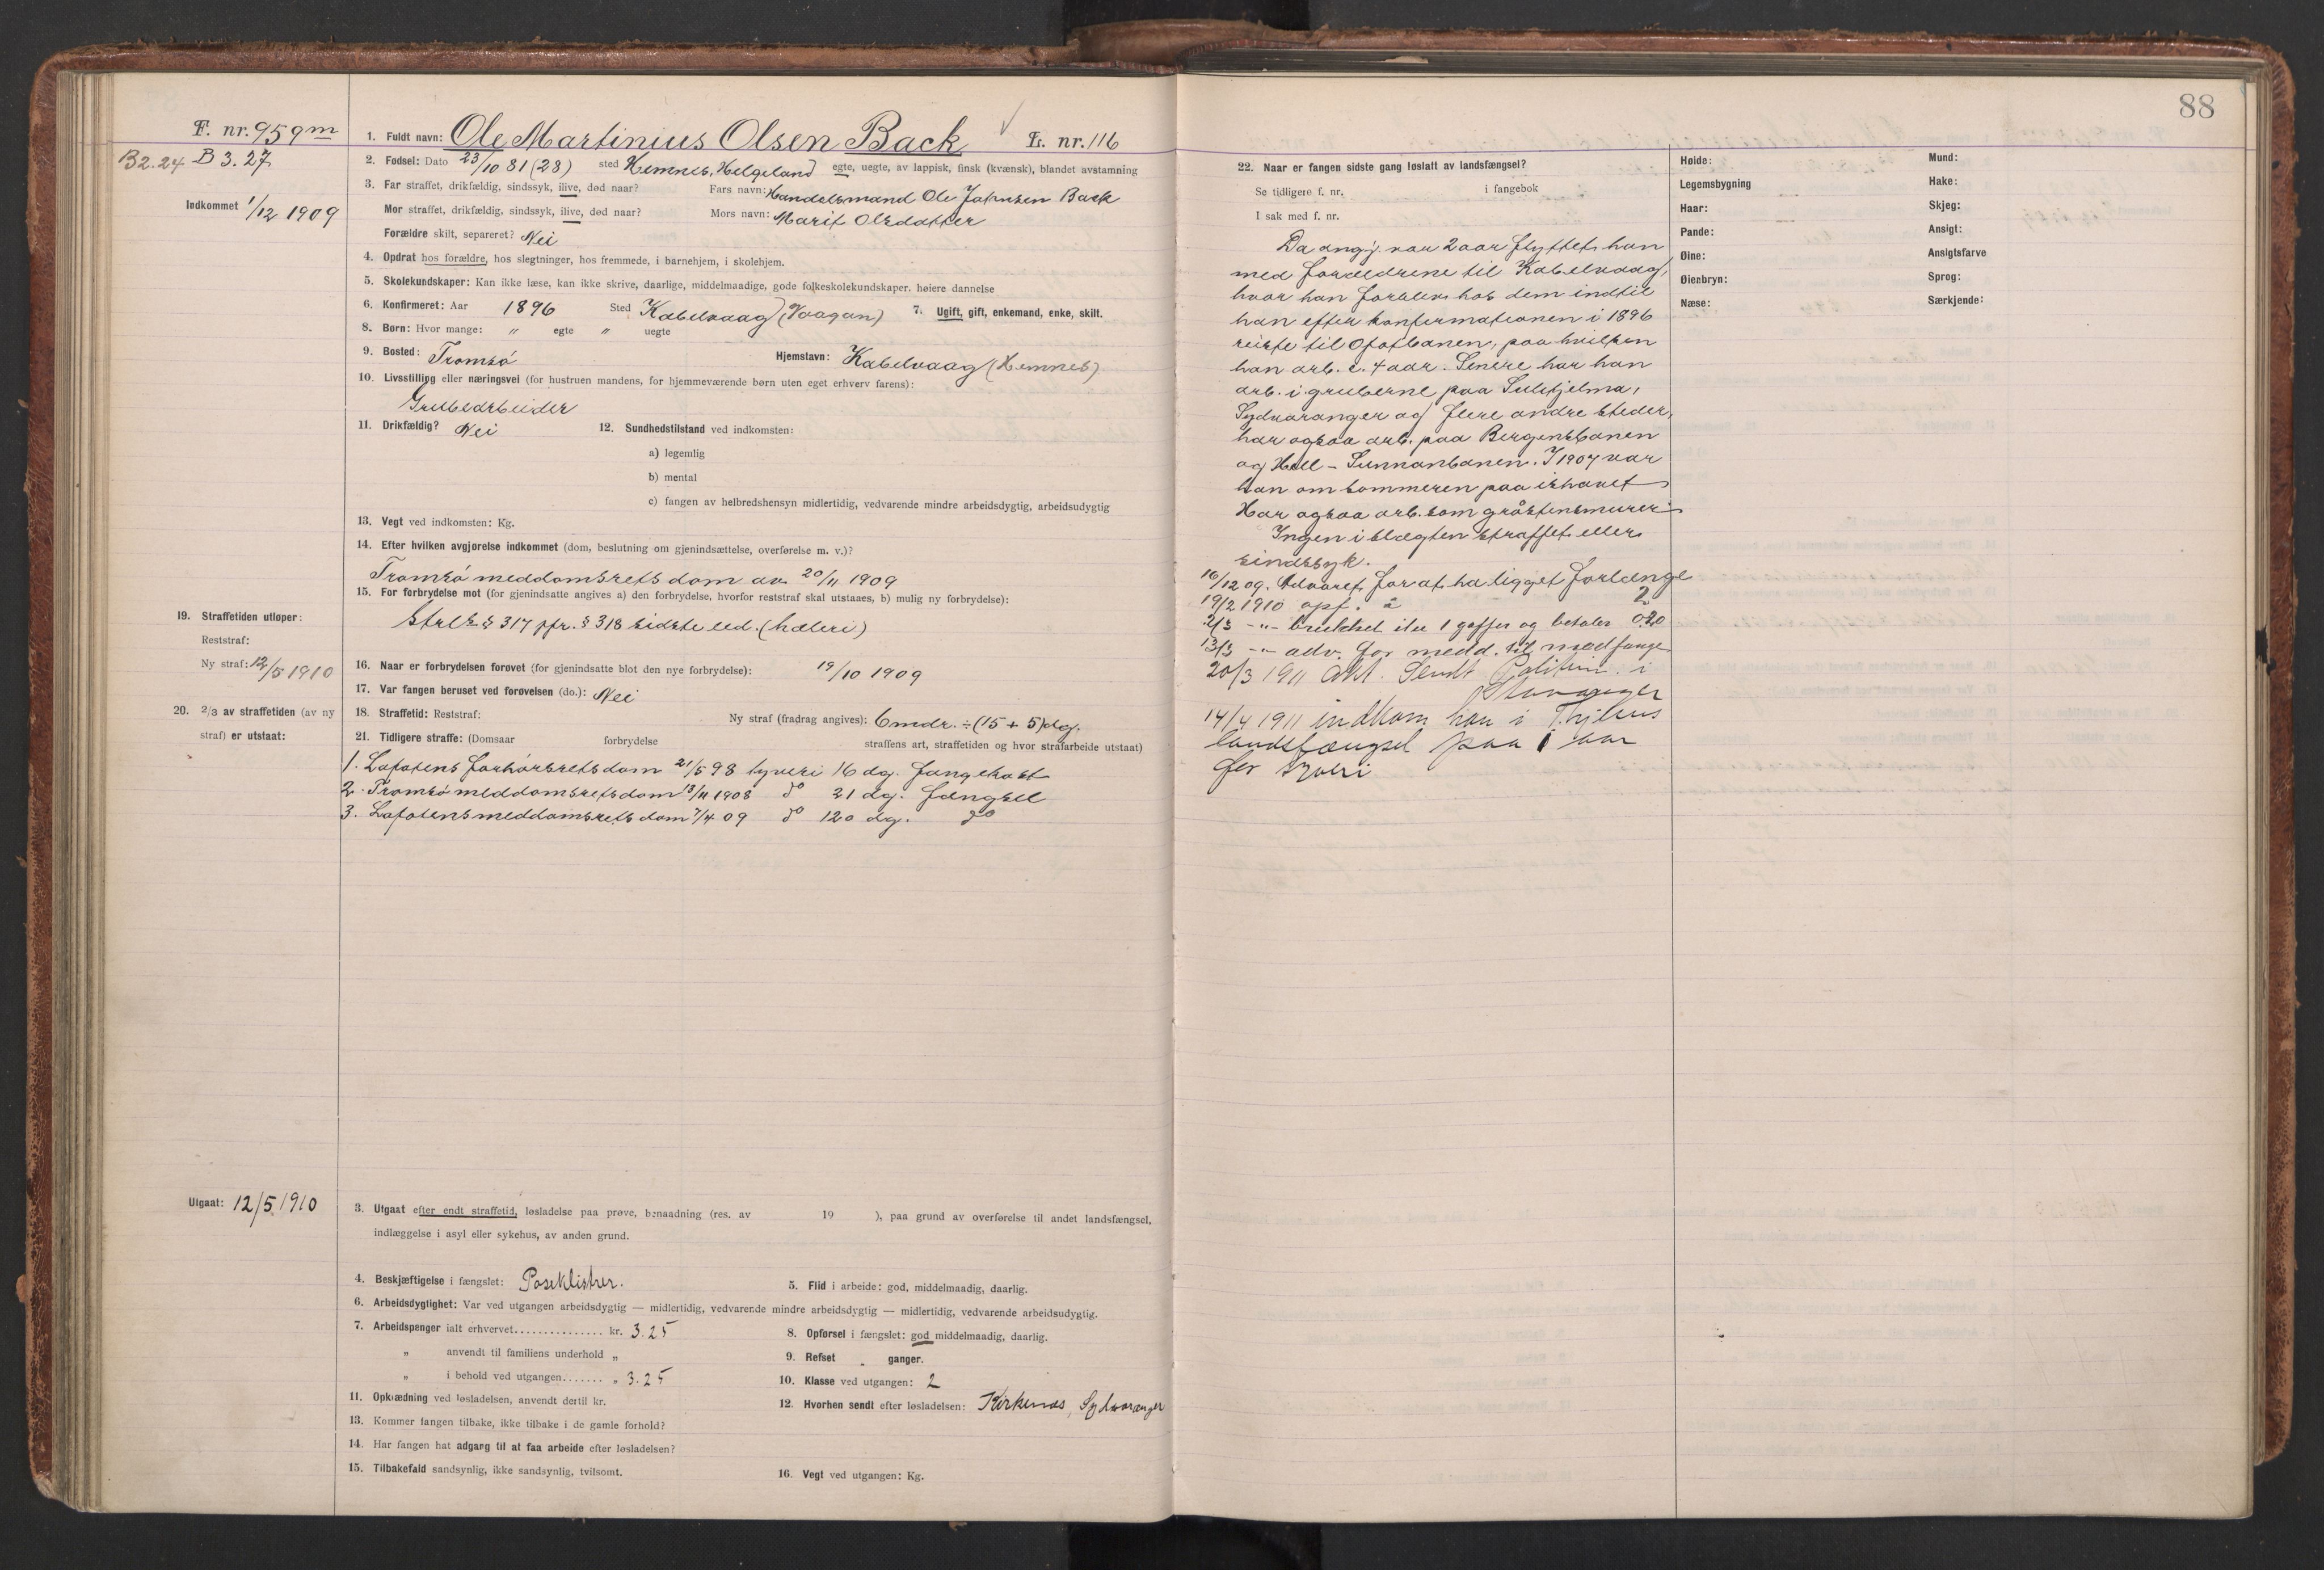 F. nr. 959 m
B2.24 B 3.27
Indkommet 1/12 1909
1. Fuldt navn: Ole Martinius Olsen Back L. nr. 116
2. Fødsel: Dato 23/10 81 (28) sted Hemnes, Helgeland egte, uegte, av lappisk, finsk (kvænsk), blandet avstamning
3. Far straffet, drikfældig, sindssyk, ilive, død naar? Fars navn: Handelsmand Ole Johnsen Back
Mor straffet, drikfældig, sindssyk, ilive, død naar? Mors navn: Marit Olsdatter
Forældre skilt, separeret? Nei
4. Opdrat hos forældre, hos slegtninger, hos fremmede, i barnehjem, i skolehjem.
5. Skolekundskaper: Kan ikke læse, kan ikke skrive, daarlige, middelmaadige, gode folkeskolekundskaper. høiere dannelse
6. Konfirmeret: Aar 1896 Sted Kabelvaag (Vaagan) 7. Ugift, gift, enkemand, enke, skilt.
8. Børn: Hvor mange: " egte " uegte
9. Bosted: Tromsö Hjemstavn: Kabelvaag (Hemnes)
10. Livsstilling eller næringsvei (for hustruen mandens, for hjemmeværende børn uten eget erhverv farens):
Grubearbeider
11. Drikfældig? Nei 12. Sundhedstilstand ved indkomsten:
a) legemlig
b) mental
c) fangen av helbredshensyn midlertidig, vedvarende mindre arbeidsdygtig, arbeidsudygtig
13. Vegt ved indkomsten: Kg.
14. Efter hvilken avgjørelse indkommet (dom, beslutning om gjenindsættelse, overførelse m. v.)?
Tromsö meddomsrets dom av 20/11 1909
15. For forbrydelse mot (for gjenindsatte angives a) den forbrydelse, hvorfor reststraf skal utstaaes, b) mulig ny forbrydelse):
Strl's § 317 jfr. § 318 sidste led. (hæleri)
19. Straffetiden utløper:
Reststraf:
Ny straf: 12/5 1910
16. Naar er forbrydelsen forøvet (for gjenindsatte blot den nye forbrydelse): 19/10 1909
17. Var fangen beruset ved forøvelsen (do.): Nei
20. 2/3 av straffetiden (av ny
straf) er utstaat:
18. Straffetid: Reststraf: Ny straf (fradrag angives): 6 mdr. ÷ (15 + 5) dg.
21. Tidligere straffe: (Domsaar forbrydelse straffens art, straffetiden og hvor strafarbeide utstaat)
1. Lofotens forhörsrets dom 21/5 98 tyveri 16 dg. fangekost
2. Tromsö meddomsrets dom 13/11 1908 do 21 dg. fængsel
3. Lofotens meddomsrets dom 7/4 09 do 120 dg. do
Utgaat: 12/5 1910
3. Utgaat efter endt straffetid, løsladelse paa prøve, benaadning (res. av 19 ), paa grund av overførelse til andet landsfængsel,
indlæggelse i asyl eller sykehus, av anden grund.
4. Beskjæftigelse i fængslet: Poseklistrer. 5. Flid i arbeide: god, middelmaadig, daarlig.
6. Arbeidsdygtighet: Var ved utgangen arbeidsdygtig — midlertidig, vedvarende mindre arbeidsdygtig — midlertidig, vedvarende arbeidsudygtig.
7. Arbeidspenger ialt erhvervet............... kr. 3.25 8. Opførsel i fængslet: god middelmaadig, daarlig.
" anvendt til familiens underhold " 9. Refset " ganger.
" i behold ved utgangen....... " 3.25 10. Klasse ved utgangen: 2
11. Opklædning ved løsladelsen, anvendt dertil kr. 12. Hvorhen sendt efter løsladelsen: Kirkenæs, Sydvaranger
13. Kommer fangen tilbake, ikke tilbake i de gamle forhold?
14. Har fangen hat adgang til at faa arbeide efter løsladelsen?
15. Tilbakefald sandsynlig, ikke sandsynlig, tvilsomt. 16. Vegt ved utgangen: Kg.
88
22. Naar er fangen sidste gang løslatt av landsfængsel?
Se tidligere f. nr. i fangebok
I sak med f. nr.
Da angj. var 2 aar flyttet han
med forældrene til Kabelvaag,
hvor han forblev hos dem indtil
han efter konfirmationen i 1896
reiste til Ofotbanen, paa hvilken
han arb. c. 4 aar. Senere har han
arb. i gruberne paa Sulitjelma,
Sydvaranger og flere andre steder,
har ogsaa arb. paa Bergensbanen
og Hell - Sunnanbanen. I 1907 var
han om sommeren paa ishavet
Har ogsaa arb. som gråstensmurer
Ingen i slægten straffet eller
sindssyk.
16/12 09. Advaret for at ha ligget forlænge
19/2 1910 opf. i 2
2/3 -"- brukket itu 1 gaffel og betaler 0.20
13/3 -"- adv. for medd. til medfange
20/3 1911 Akt. sendt Politim. i
Stavanger
14/4 1911 indkom han i Thjems
landsfængsel paa 1 aar
for tyveri
Høide:
Legemsbygning
Haar:
Pande:
Øine:
Øienbryn:
Næse:
Mund:
Hake:
Skjeg:
Ansigt:
Ansigtsfarve
Sprog:
Særkjende: